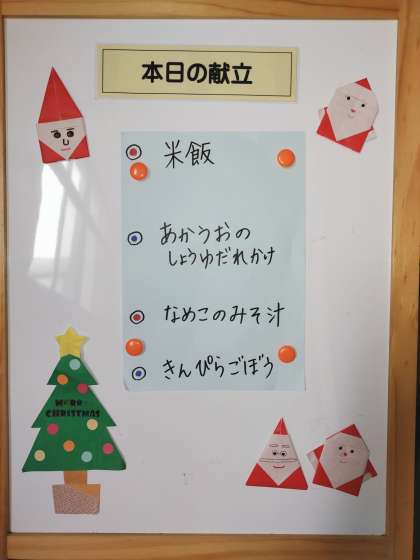 本日の献立
米飯
あかうおの
しょうゆだれかけ
なめこのみそ汁
きんぴらごぼう
MERRY
CHRISTMAS